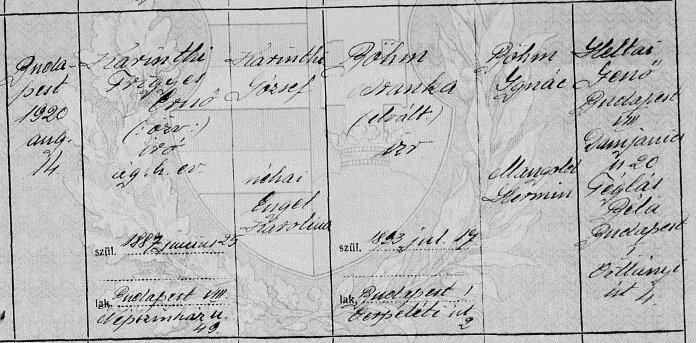 Buda-
pest
1920
aug.
14
Karinthi
Frigyes
Ernő
(: özv :)
író
ág. h. ev.
szül. 1887 junius 25
lak. Budapest VIII
Népszinház u.
49
Karinthi
József
néhai
Engel
Karolina
Böhm
Aranka
(elvált)
izr
szül. 1893 jul. 17
lak. Budapest I
Verpeléti út
2
Böhm
Ignác
Mangold
Hermin
Heltai
Jenő
Budapest
VIII
Damjanich
u 20
Téglás
Béla
Budapest
I
út 4